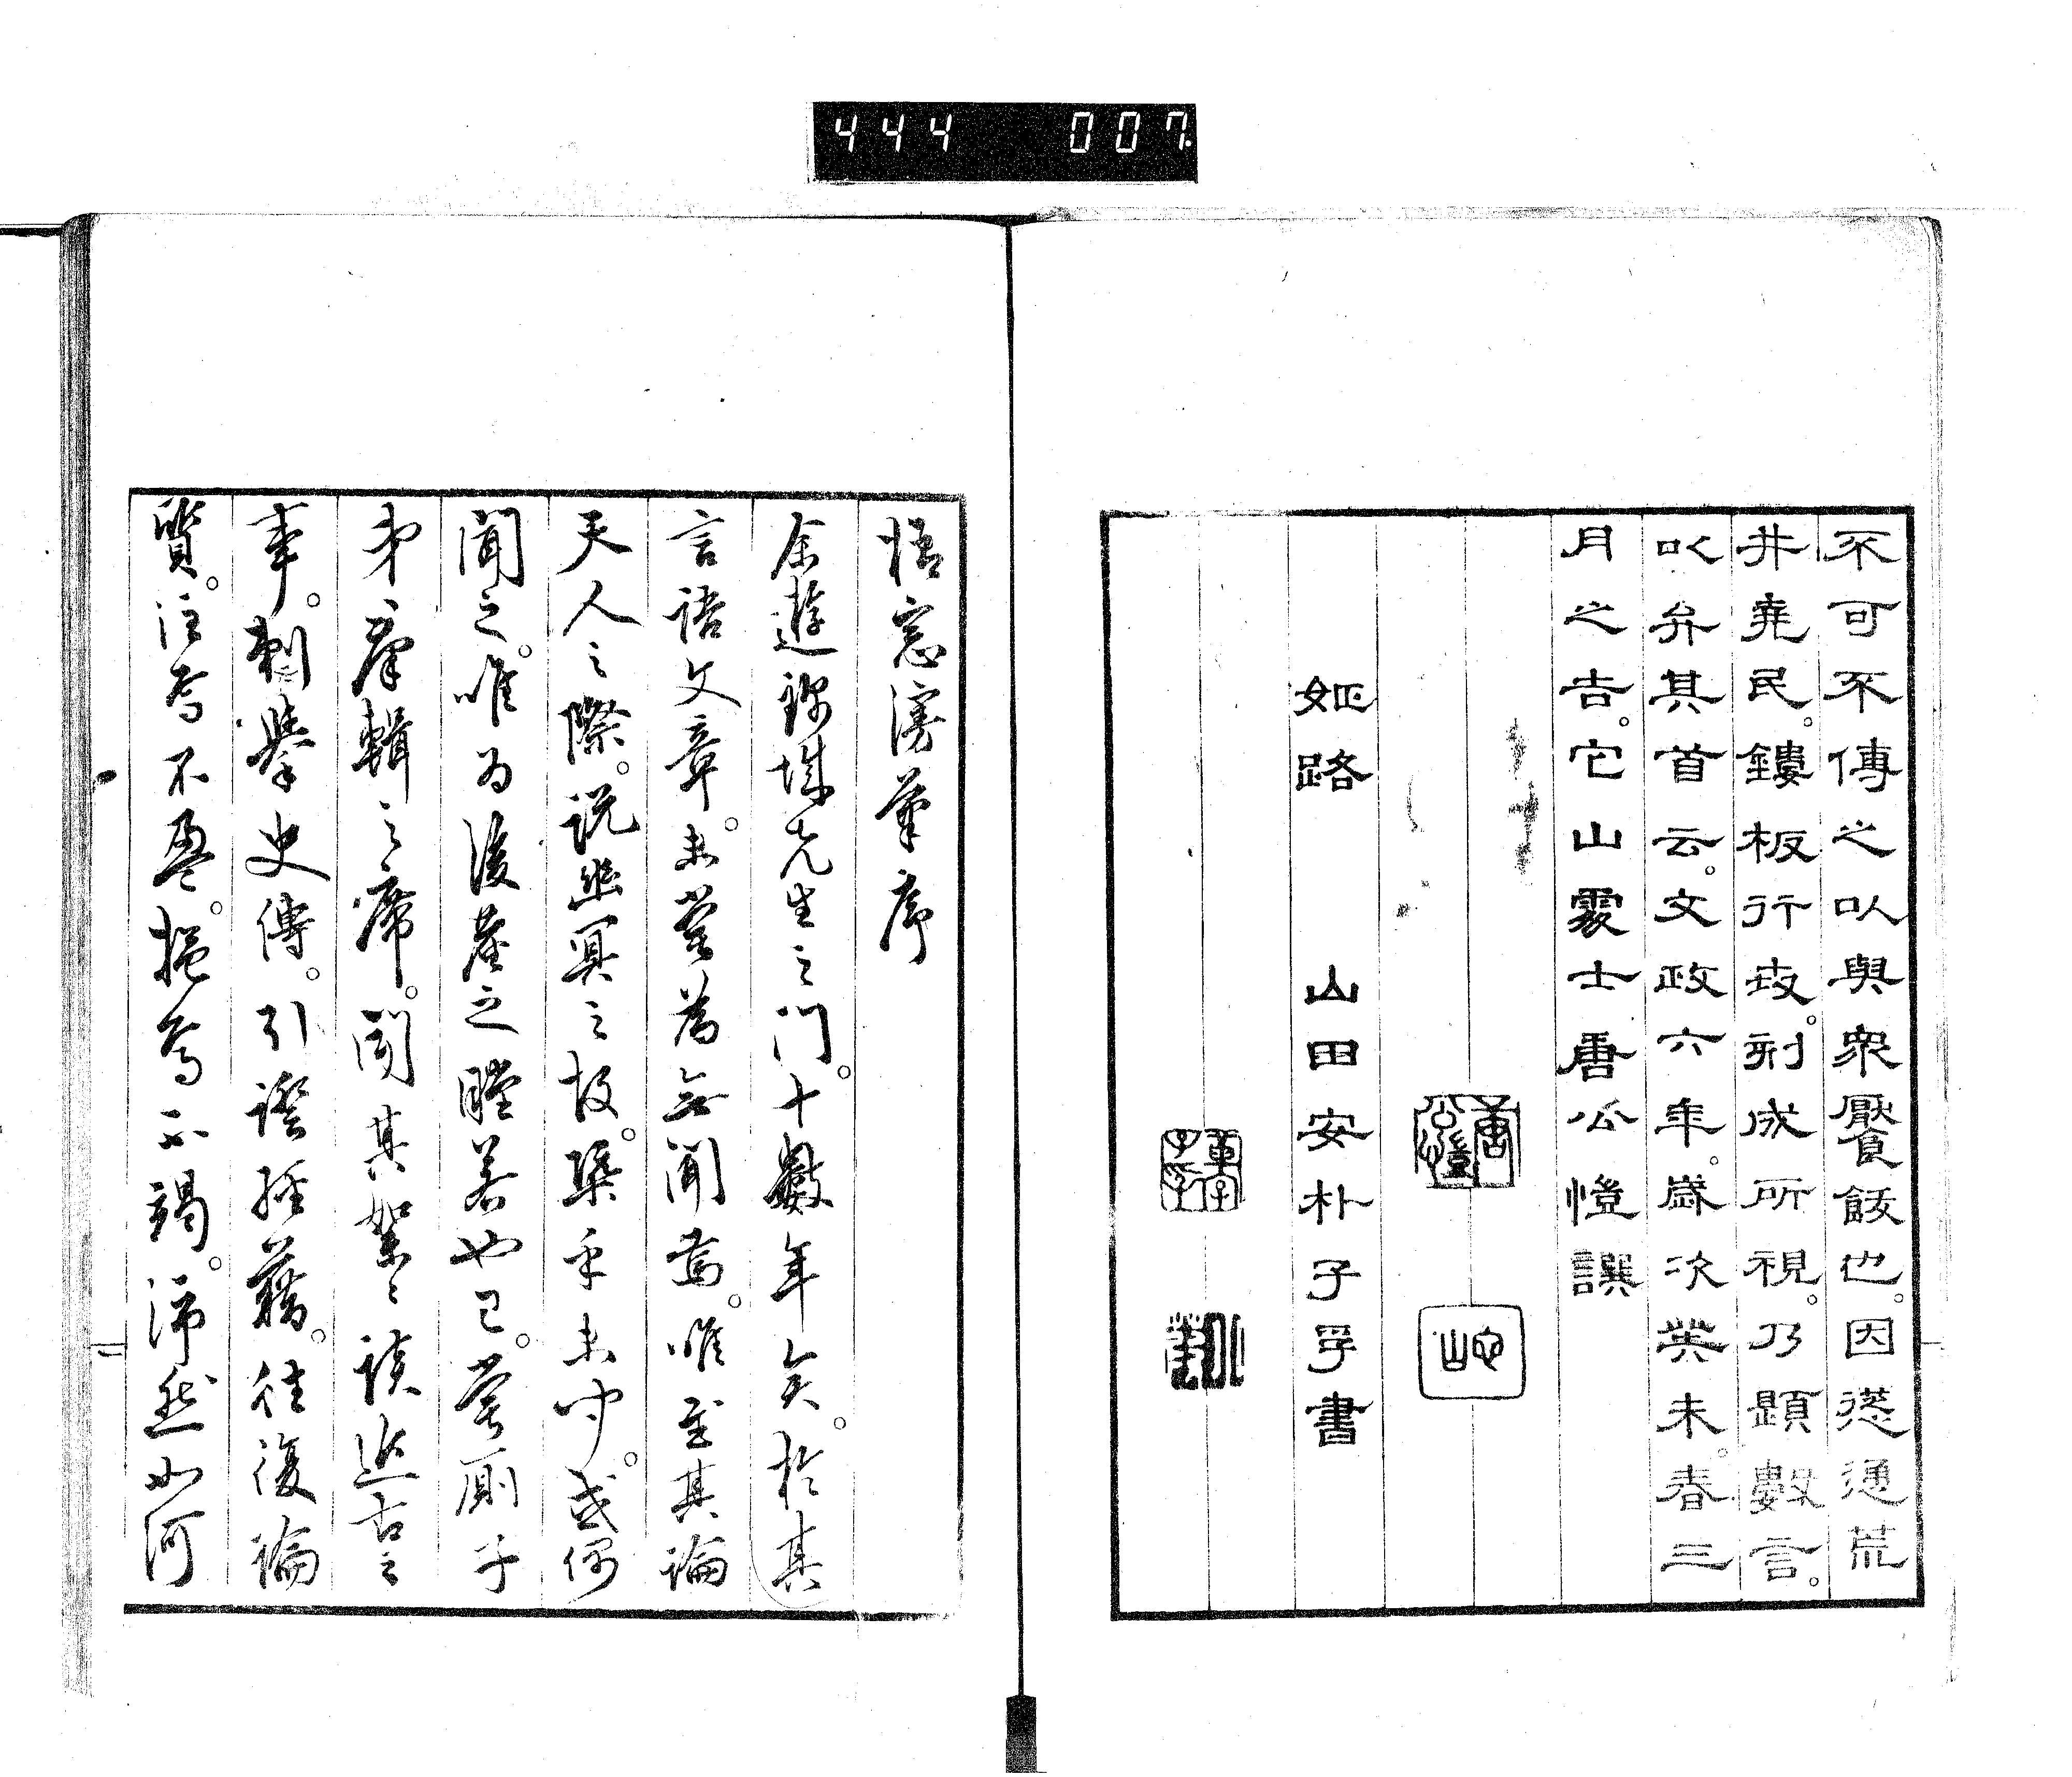 444 007.
不可不傳之以與衆饜飫也。因慫通荒
井堯民。鏤板行玆。刻成所視。乃題數言。
以弁其首云。文政六年。歲次癸未。春三
月之吉。它山處士唐公愷譔
姬路 山田安朴子孚書
悟窓漫筆序
余遊錦城先生之門。十數年矣。於其
言語文章。未嘗爲無聞焉。唯至其論
天人之際。説幽冥之故。槩乎未聞。或偶
聞之。唯为後塵之瞠若也已。嘗厠于
弟彥輯之席。聞其絮〻談近古之
事。剌擧史傳。引證経籍。往復論
質。注焉不盈。挹焉不竭。沛然如河